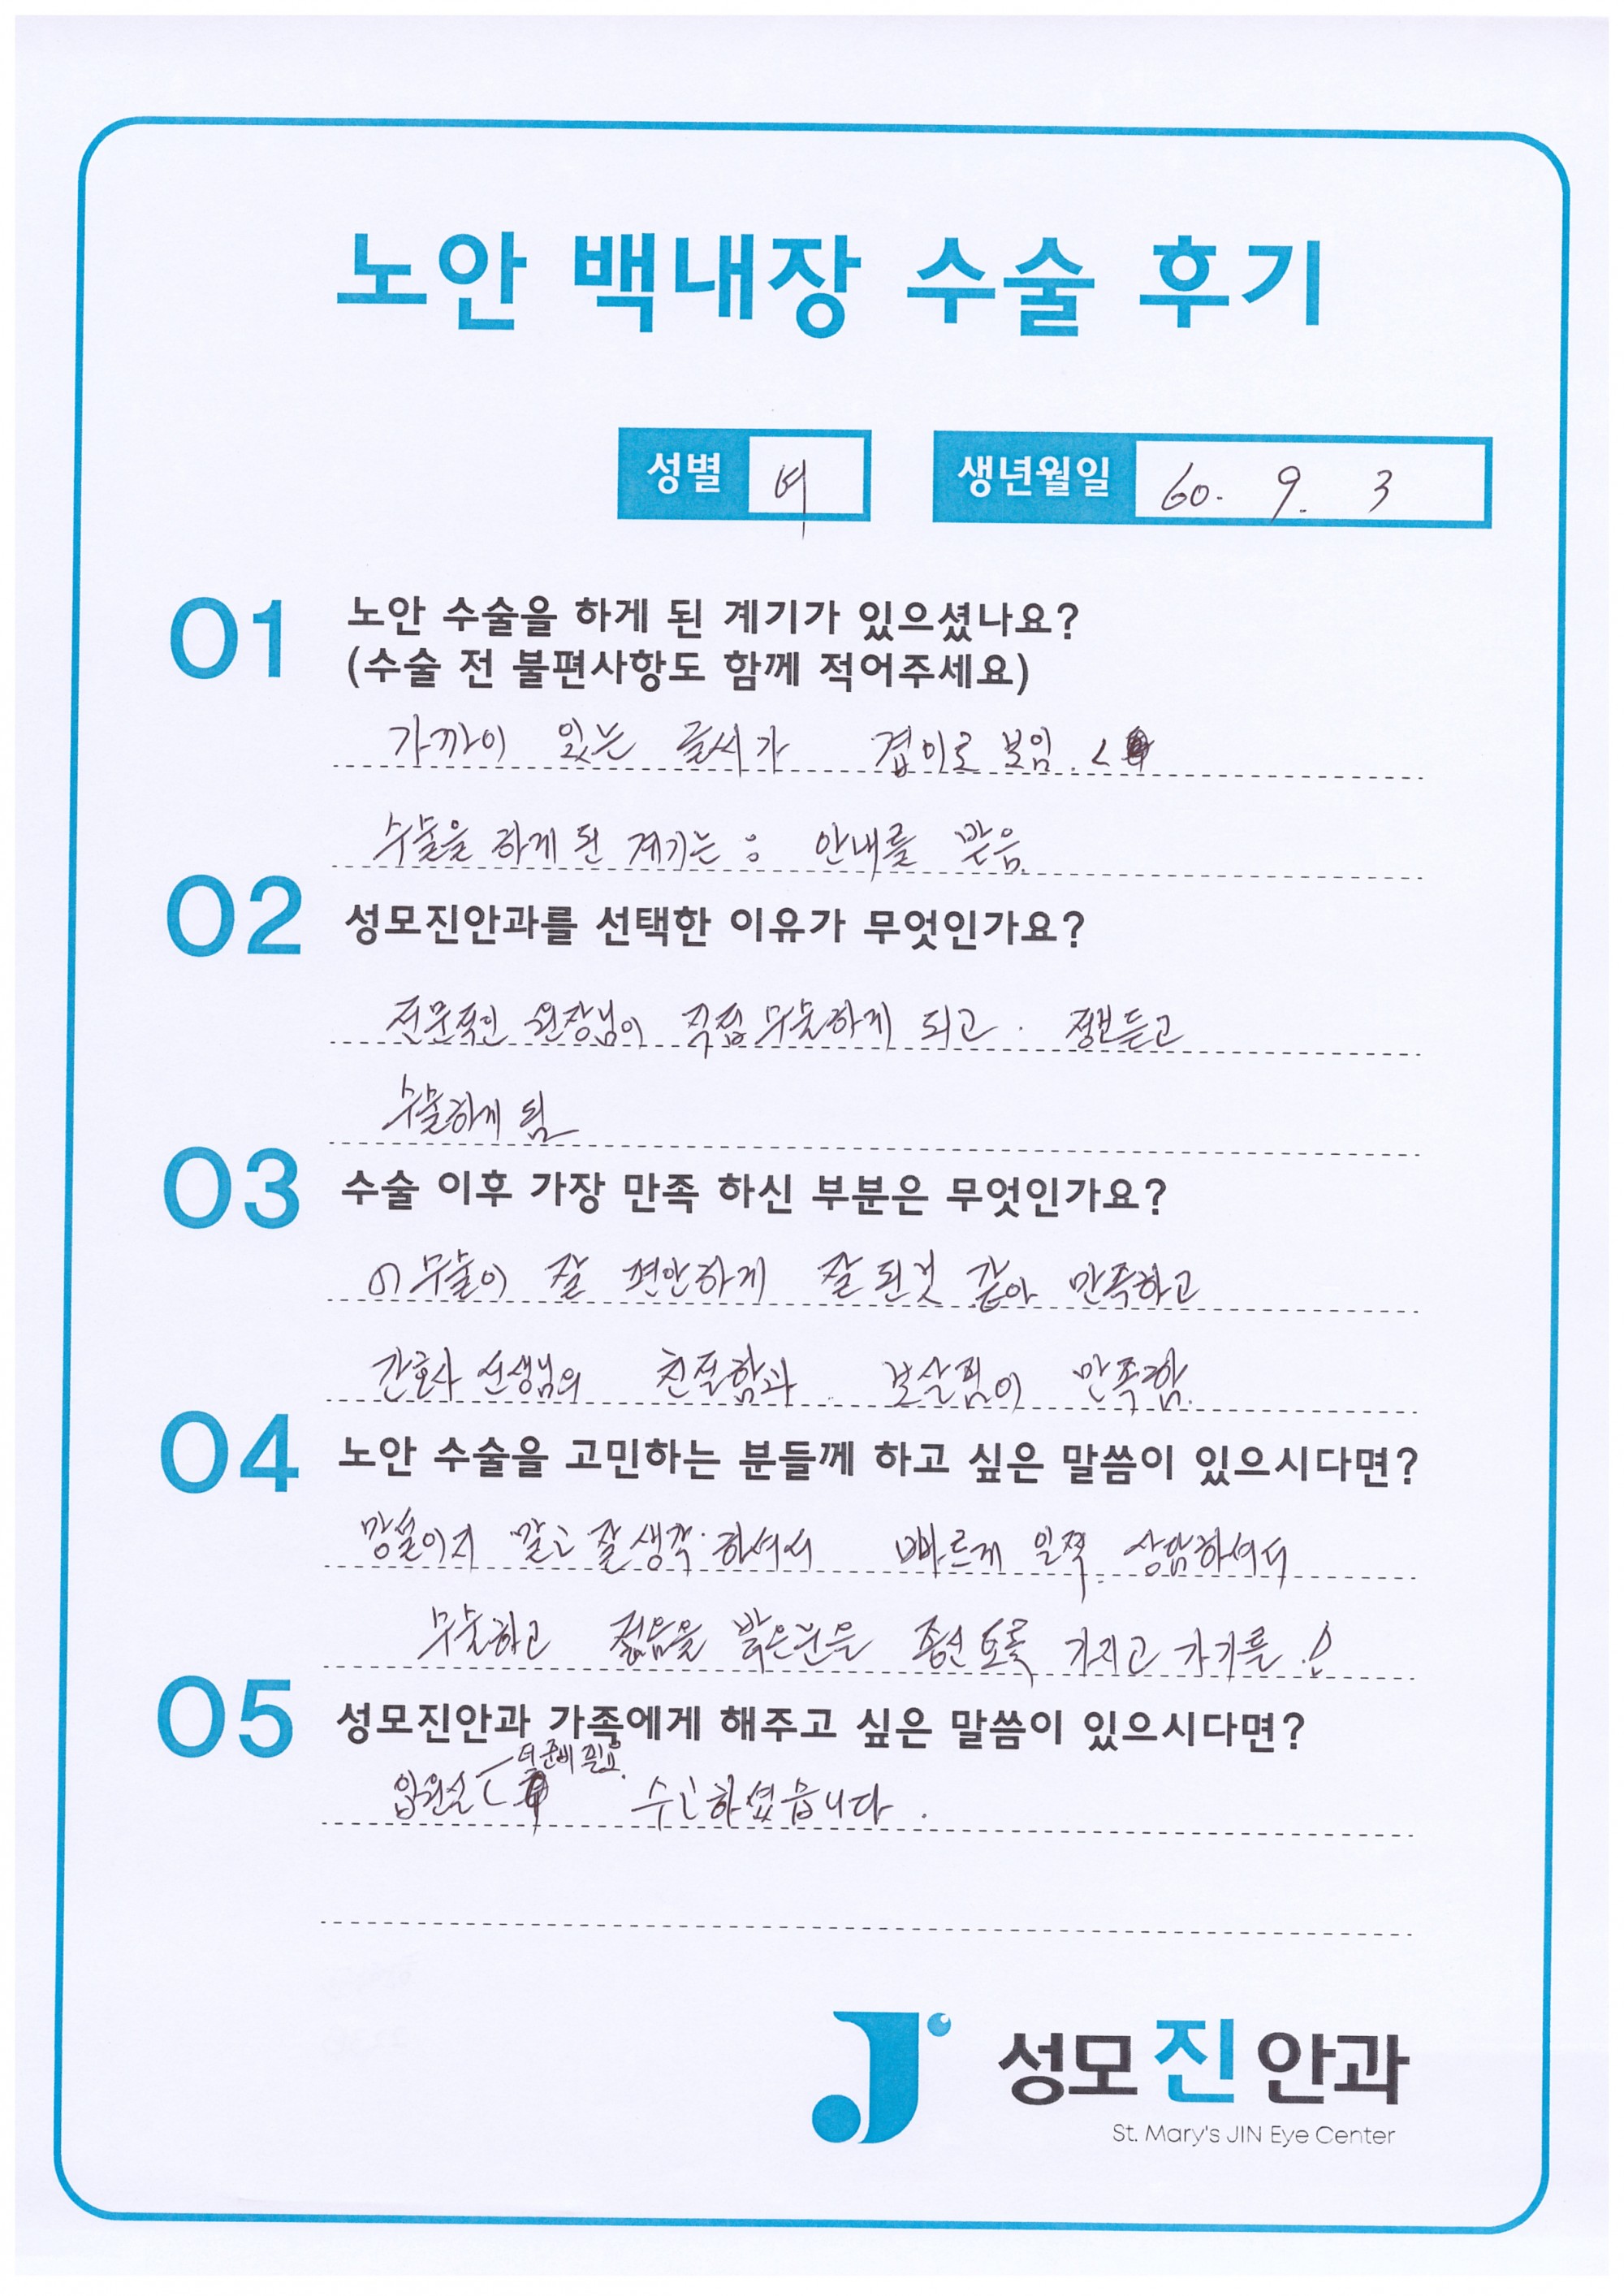 노안 백내장 수술 후기
성별 여 생년월일 60. 9. 3
01 노안 수술을 하게 된 계기가 있으셨나요?
(수술 전 불편사항도 함께 적어주세요)
가까이 있는 글씨가 겹이로 보임.
수술을 하게 된 계기는 : 안내를 받음.
02 성모진안과를 선택한 이유가 무엇인가요?
전문적인 원장님이 직접 수술하게 되고. 정보듣고
수술하게 됨
03 수술 이후 가장 만족 하신 부분은 무엇인가요?
수술이 잘 편안하게 잘 된것 같아 만족하고
간호사 선생님의 친절함과 보살핌이 만족함.
04 노안 수술을 고민하는 분들께 하고 싶은 말씀이 있으시다면?
망설이지 말고 잘 생각 하셔서 빠르게 일찍 상담하셔서
수술하고 젊음을 밝은눈을 종신토록 가지고 가기를 !
05 성모진안과 가족에게 해주고 싶은 말씀이 있으시다면?
더 준비 필요.
입원실 수고하셨습니다.
J
성모진안과
St. Mary's JIN Eye Center